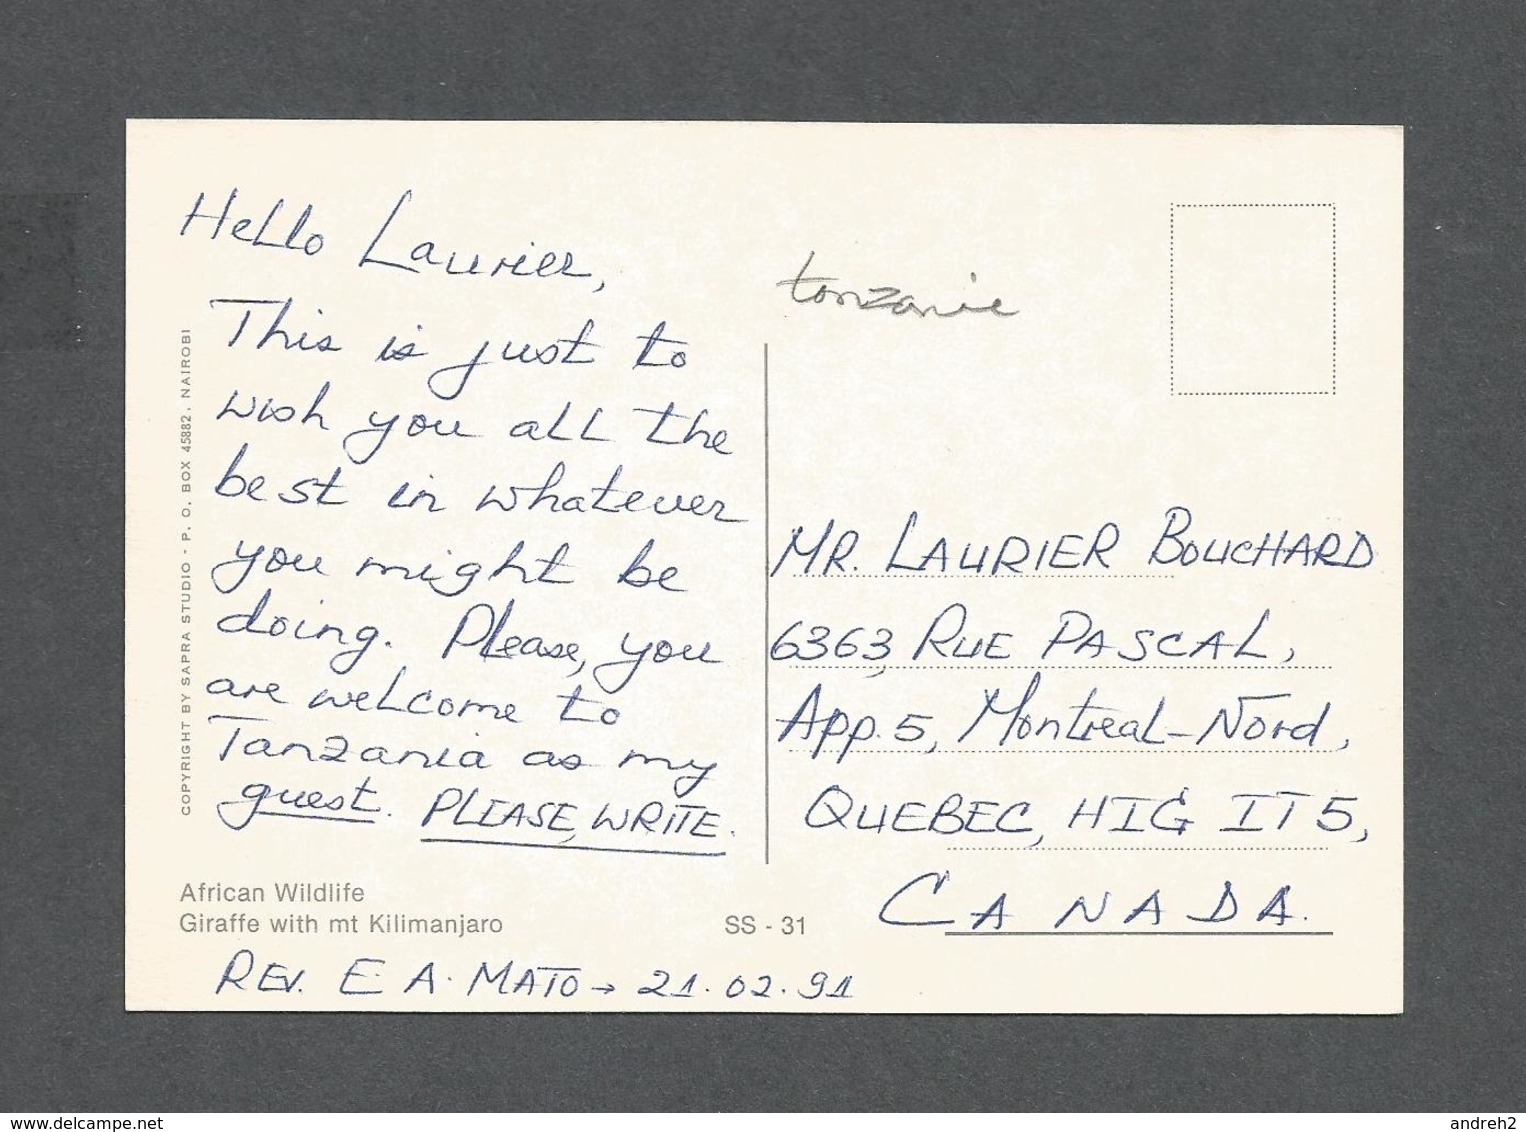 Hello Laurier,
This is just to
wish you all the
best in whatever
you might be
doing. Please, you
are welcome to
Tanzania as my
guest. PLEASE, WRITE.
COPYRIGHT BY SAPRA STUDIO - P. O. BOX 45882, NAIROBI
African Wildlife
Giraffe with mt Kilimanjaro
SS - 31
REV. E A. MATO → 21.02.91
tanzanie
MR. LAURIER BOUCHARD
6363, RUE PASCAL,
App. 5, Montreal-Nord,
QUEBEC, HIG IT5,
CANADA.
www.delcampe.net
andreh2